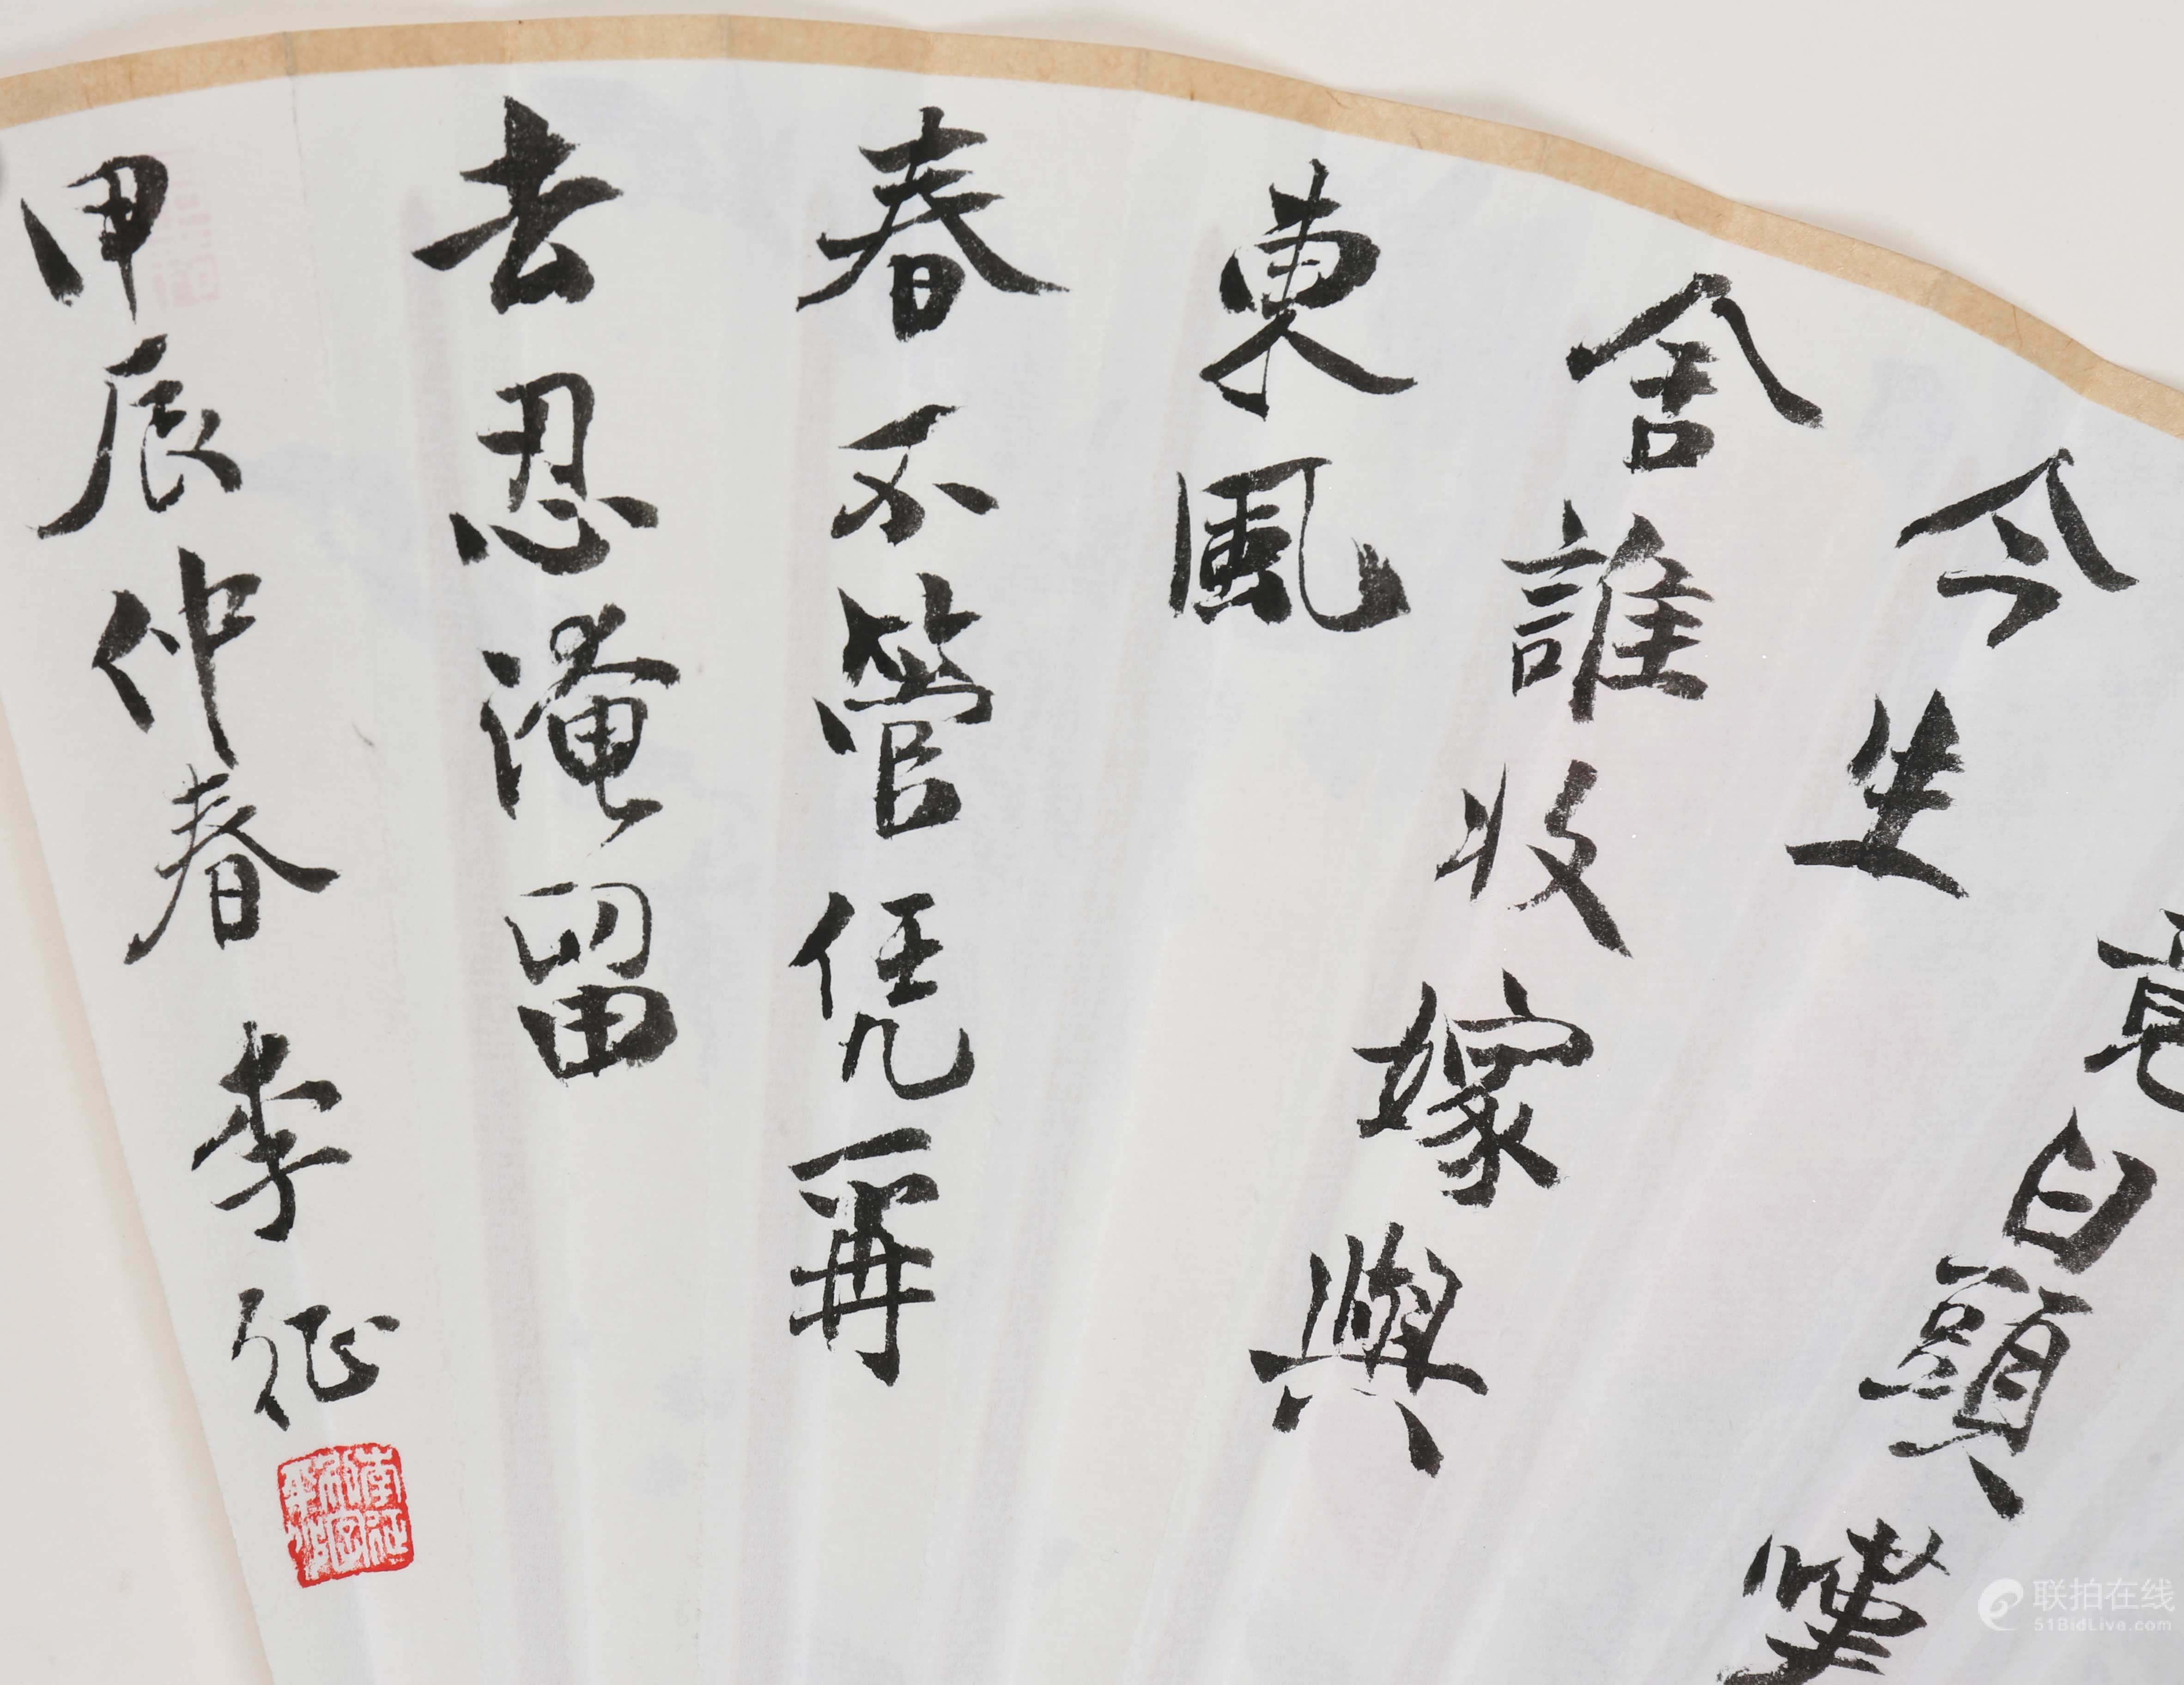 竟白頭嘆
今生
舍誰收嫁與
東風
春不管凭爾
去忍淹留
甲辰仲春李征
联拍在线
51BidLive.com